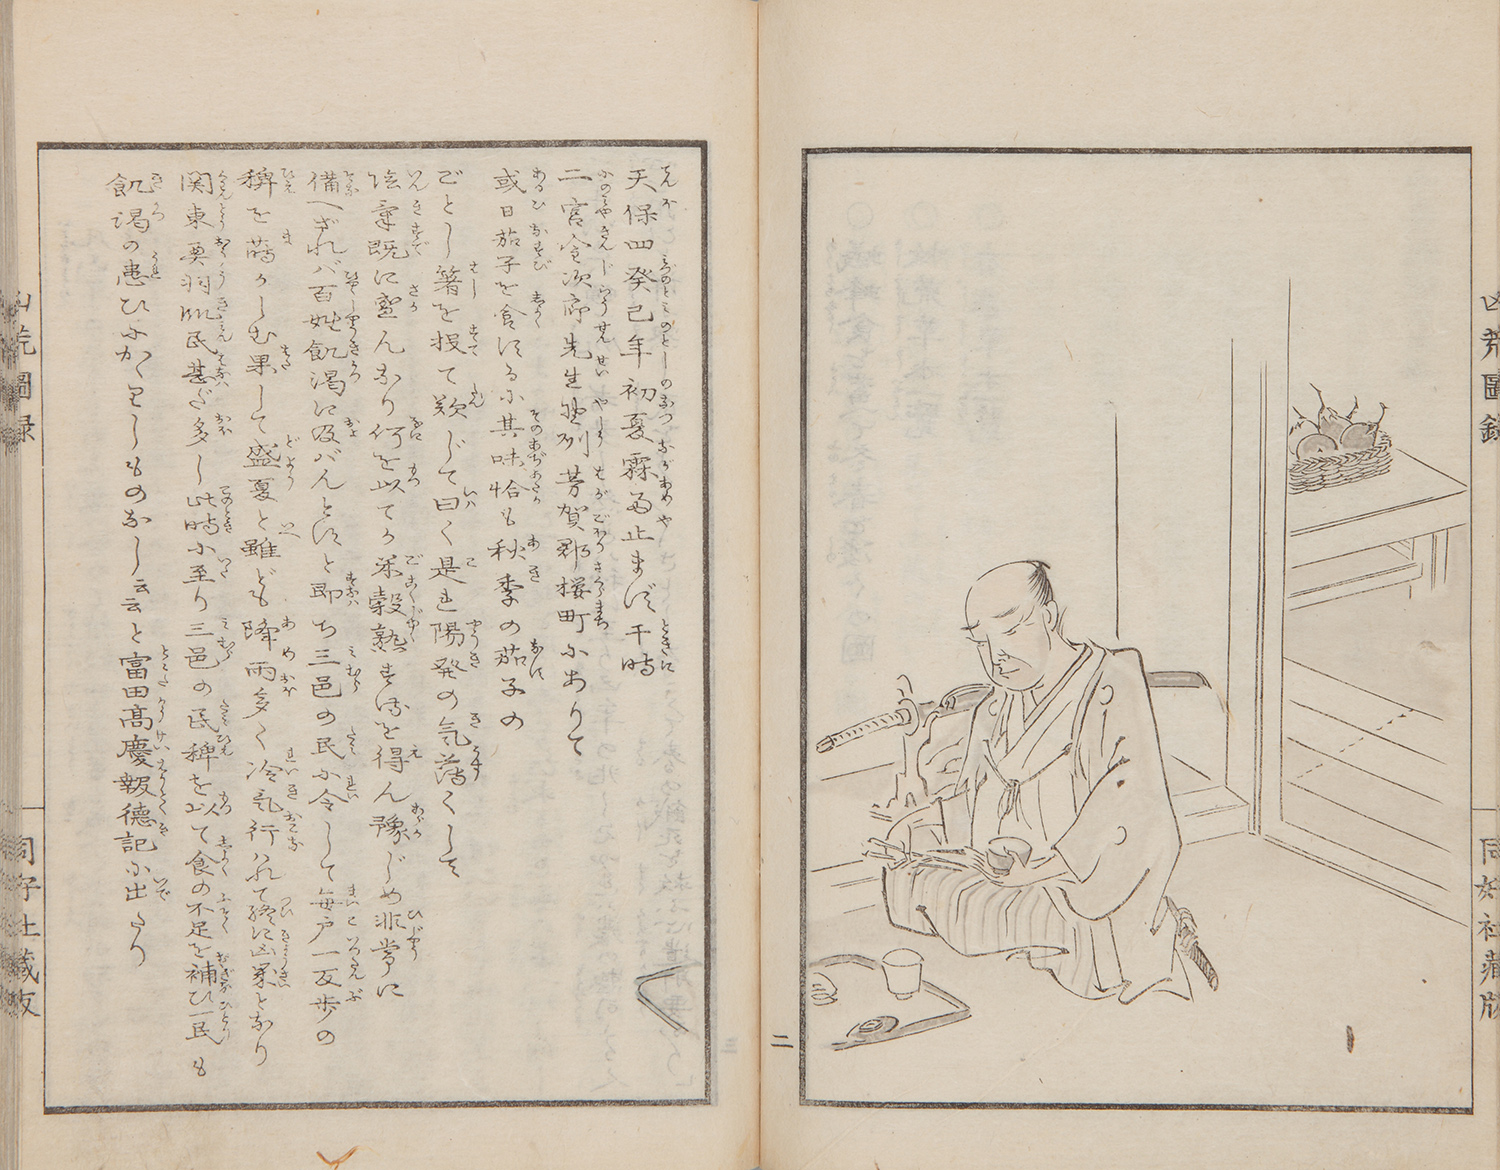 凶荒圖録
同好社蔵版
二
天保四癸巳年初夏霖雨止まず于時
二宮金次郎先生野州芳賀郡桜町にありて
或日茄子を食するに其味恰も秋季の茄子の
ごとし箸を投て歎じて曰く是れ陽発の気薄くして
陰気既に盛んなり何を以てか米穀熟するを得ん豫じめ非常に
備へざれバ百姓飢渇に及バんとすと即ち三邑の民に令して毎戸一反歩の
稗を蒔かしむ果して盛夏と雖ども降雨多く冷気行ハれて終に凶歳となり
関東奥羽飢民甚だ多し此時に至り三邑の民稗を以て食の不足を補ひ一民も
飢渇の患ひにかゝりしものなし云云と富田高慶報徳記に出たり
凶荒圖録
同好社蔵版